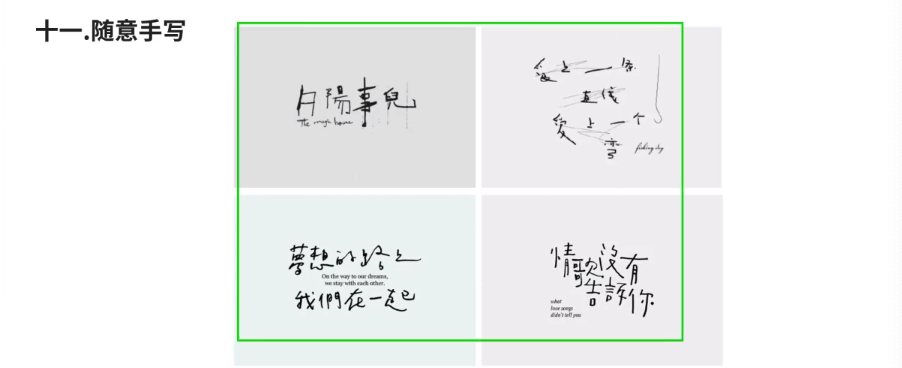 十一.随意手写
夕陽事兒
The magic hour
愛上一條
直後
愛上一个
雪
夢想的路上
On the way to our dreams,
we stay with each other.
我們在一起
情歌沒有
告訴你
what
love songs
didn't tell you